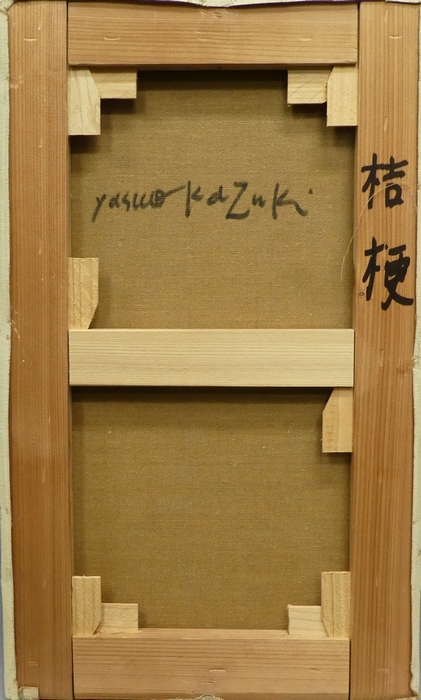 yasuo Kazuki
桔梗